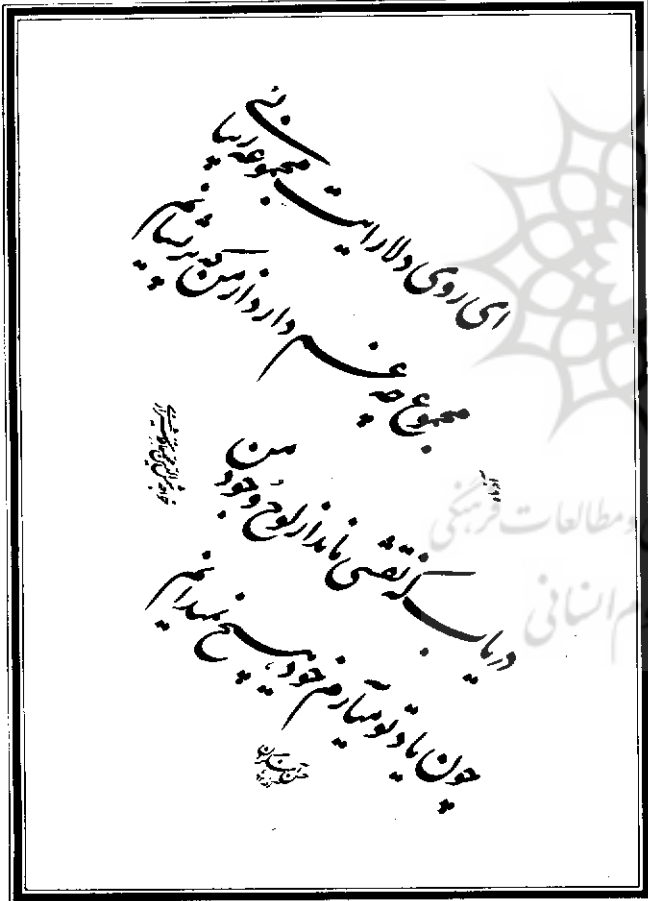 ای روی دلارایت مجموعه زیبائی
مجموع چه غم دارد از من که پریشانم
دریاب که نقشی ماند از لوح وجود من
چون یاد تو میآرم خود هیچ نمیدانم
و مطالعات فرهنگی
وم انسانی